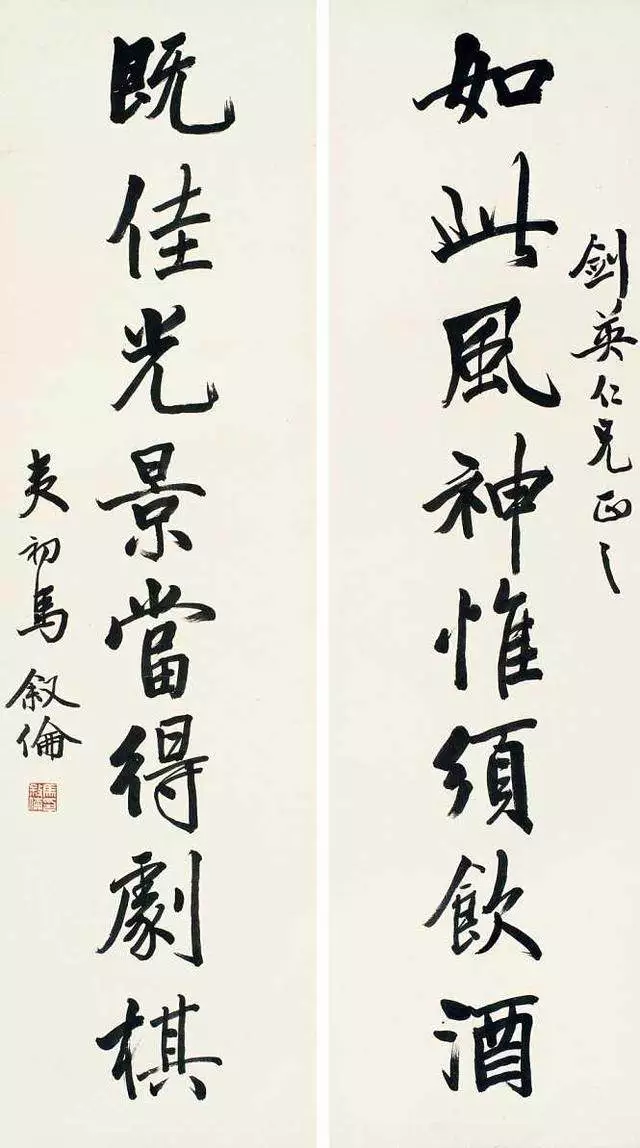 劍英仁兄正之
如此風神惟須飲酒
既佳光景當得劇棋
夷初馬敘倫